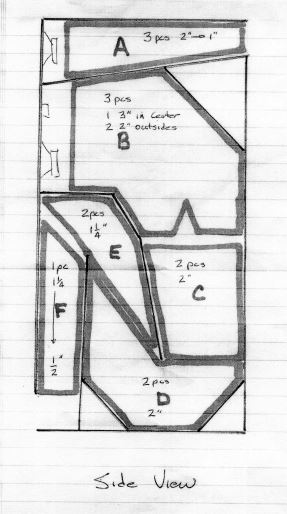 A
3 pcs 2"→1"
3 pcs
1 3" in center
2 2" outsides
B
2pcs
1 1/4"
E
2 pcs
2"
C
1pc
1 1/4
F
1/2"
2 pcs
D
2"
Side View